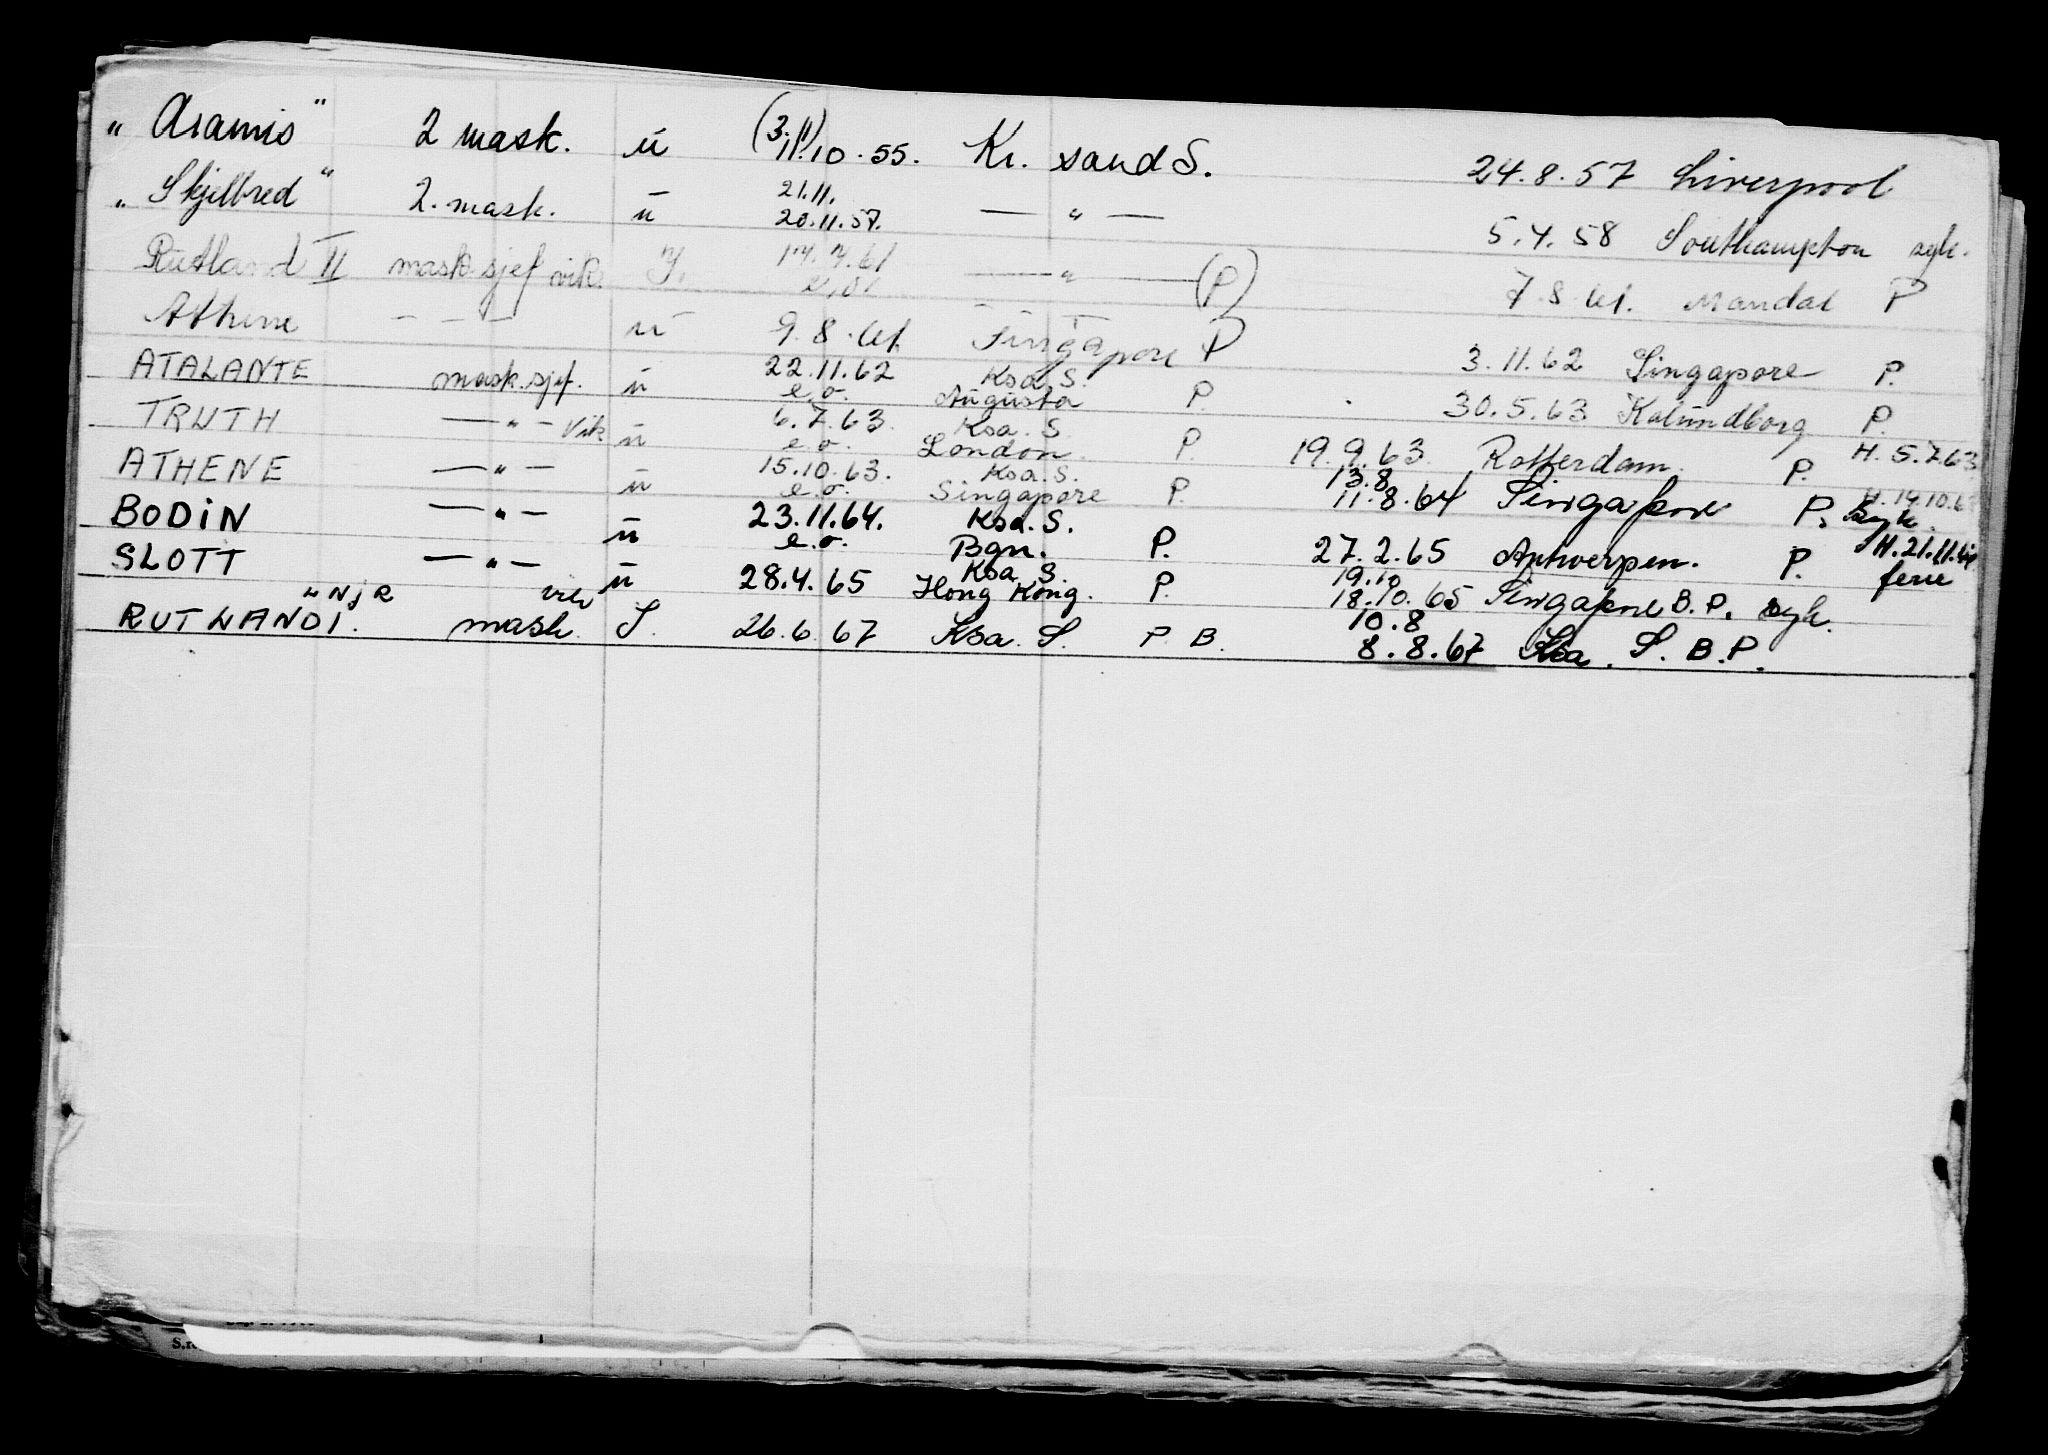 „ Aramis " 2 mask. u (3.11) 11.10.55. Kr. sand S. 24.8.57 Liverpool
„ Skjelbred " 2. mask. u 21.11. 20.11.57. — " — 5.4.58 Southampton syk.
Rutland II mask.sjef vik. — " — (P) 7.8.61. Mandal P
Athene — — — u 9.8.61 Singapore P 3.11.62 Singapore P.
ATALANTE mask.sjef. u 22.11.62 e.o. Ksa. S. Augusta P. 30.5.63 Kalundborg P.
TRUTH — " — Vik u 6.7.63. e.o. Ksa. S. London. P. 19.9.63. Rotterdam. P. H. 5.7.63
ATHENE — " — u 15.10.63. e.o. Ksa. S. Singapore P. 13.8 11.8.64 Singapore P. Syk. H. 14.10.63
BODIN — " — u 23.11.64. e.o. Ksa. S. Bgn. P. 27.2.65 Antwerpen. P. H. 21.11.64 ferie
SLOTT — " — u 28.4.65 Ksa. S. Hong Kong. P. 19.10 18.10.65 Singapore B.P. syk.
RUTLAND I. mask. S. 26.6.67 Ksa. S. P. B. 10.8 8.8.67 Ksa. S. B.P.